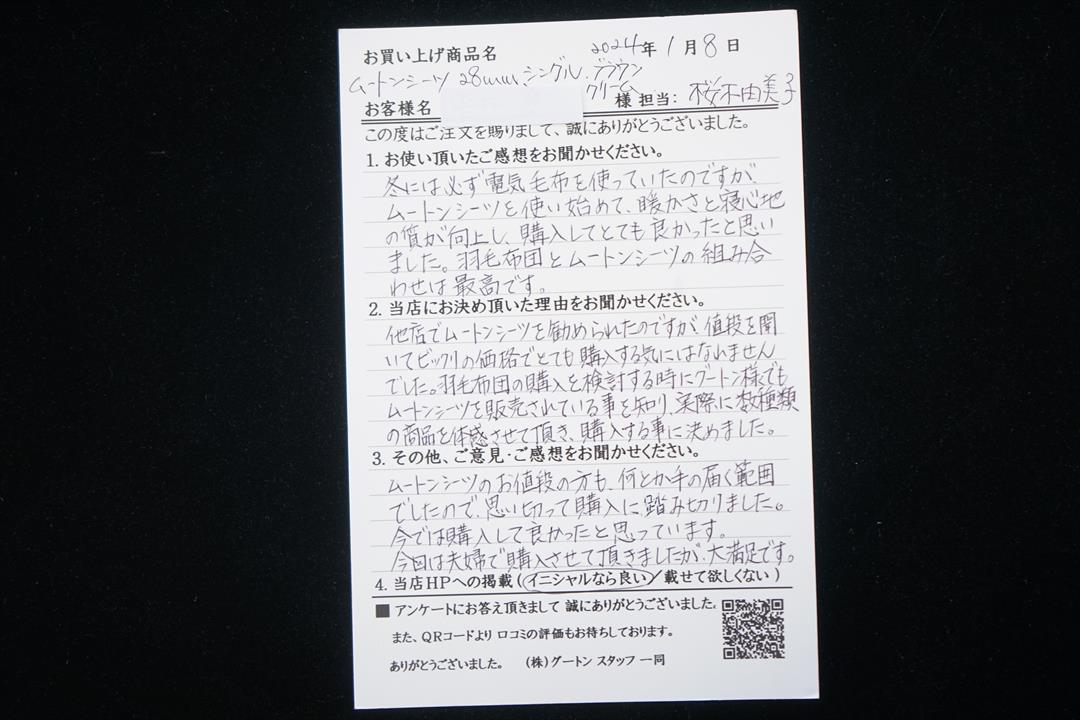 お買い上げ商品名 2024年 1月 8日
ムートンシーツ 28mm、シングル、ブラウン
クリーム
お客様名 様 担当: 桜木由美子
この度はご注文を賜りまして、誠にありがとうございました。
1. お使い頂いたご感想をお聞かせください。
冬には必ず電気毛布を使っていたのですが、
ムートンシーツを使い始めて、暖かさと寝心地
の質が向上し、購入してとても良かったと思い
ました。羽毛布団とムートンシーツの組み合
わせは最高です。
2. 当店にお決め頂いた理由をお聞かせください。
他店でムートンシーツを勧められたのですが、値段を聞
いてビックリの価格でとても購入する気にはなれません
でした。羽毛布団の購入を検討する時にグートン様でも
ムートンシーツを販売されている事を知り、実際に数種類
の商品を体感させて頂き、購入する事に決めました。
3. その他、ご意見・ご感想をお聞かせください。
ムートンシーツのお値段の方も、何とか手の届く範囲
でしたので、思い切って購入に踏み切りました。
今では購入して良かったと思っています。
今回は夫婦で購入させて頂きましたが、大満足です。
4. 当店HPへの掲載 (イニシャルなら良い/載せて欲しくない)
■ アンケートにお答え頂きまして 誠にありがとうございました。
また、QRコードより 口コミの評価もお待ちしております。
ありがとうございました。 (株)グートン スタッフ 一同